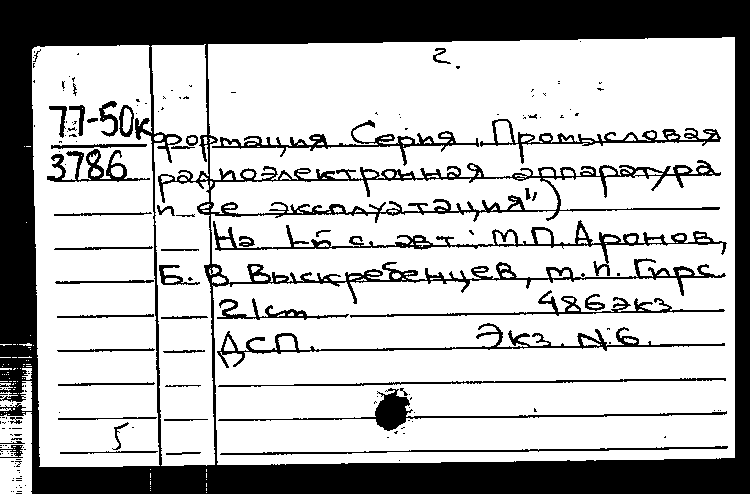 2.
77-50к
3786
формация. Серия „Промысловая
радиоэлектронная аппаратура
и ее эксплуатация")
На 1-й с. авт: М.П. Аронов,
Б.В. Выскребенцев, М.П. Гирс
21см 486 экз
ДСП. Экз. N 6.
5